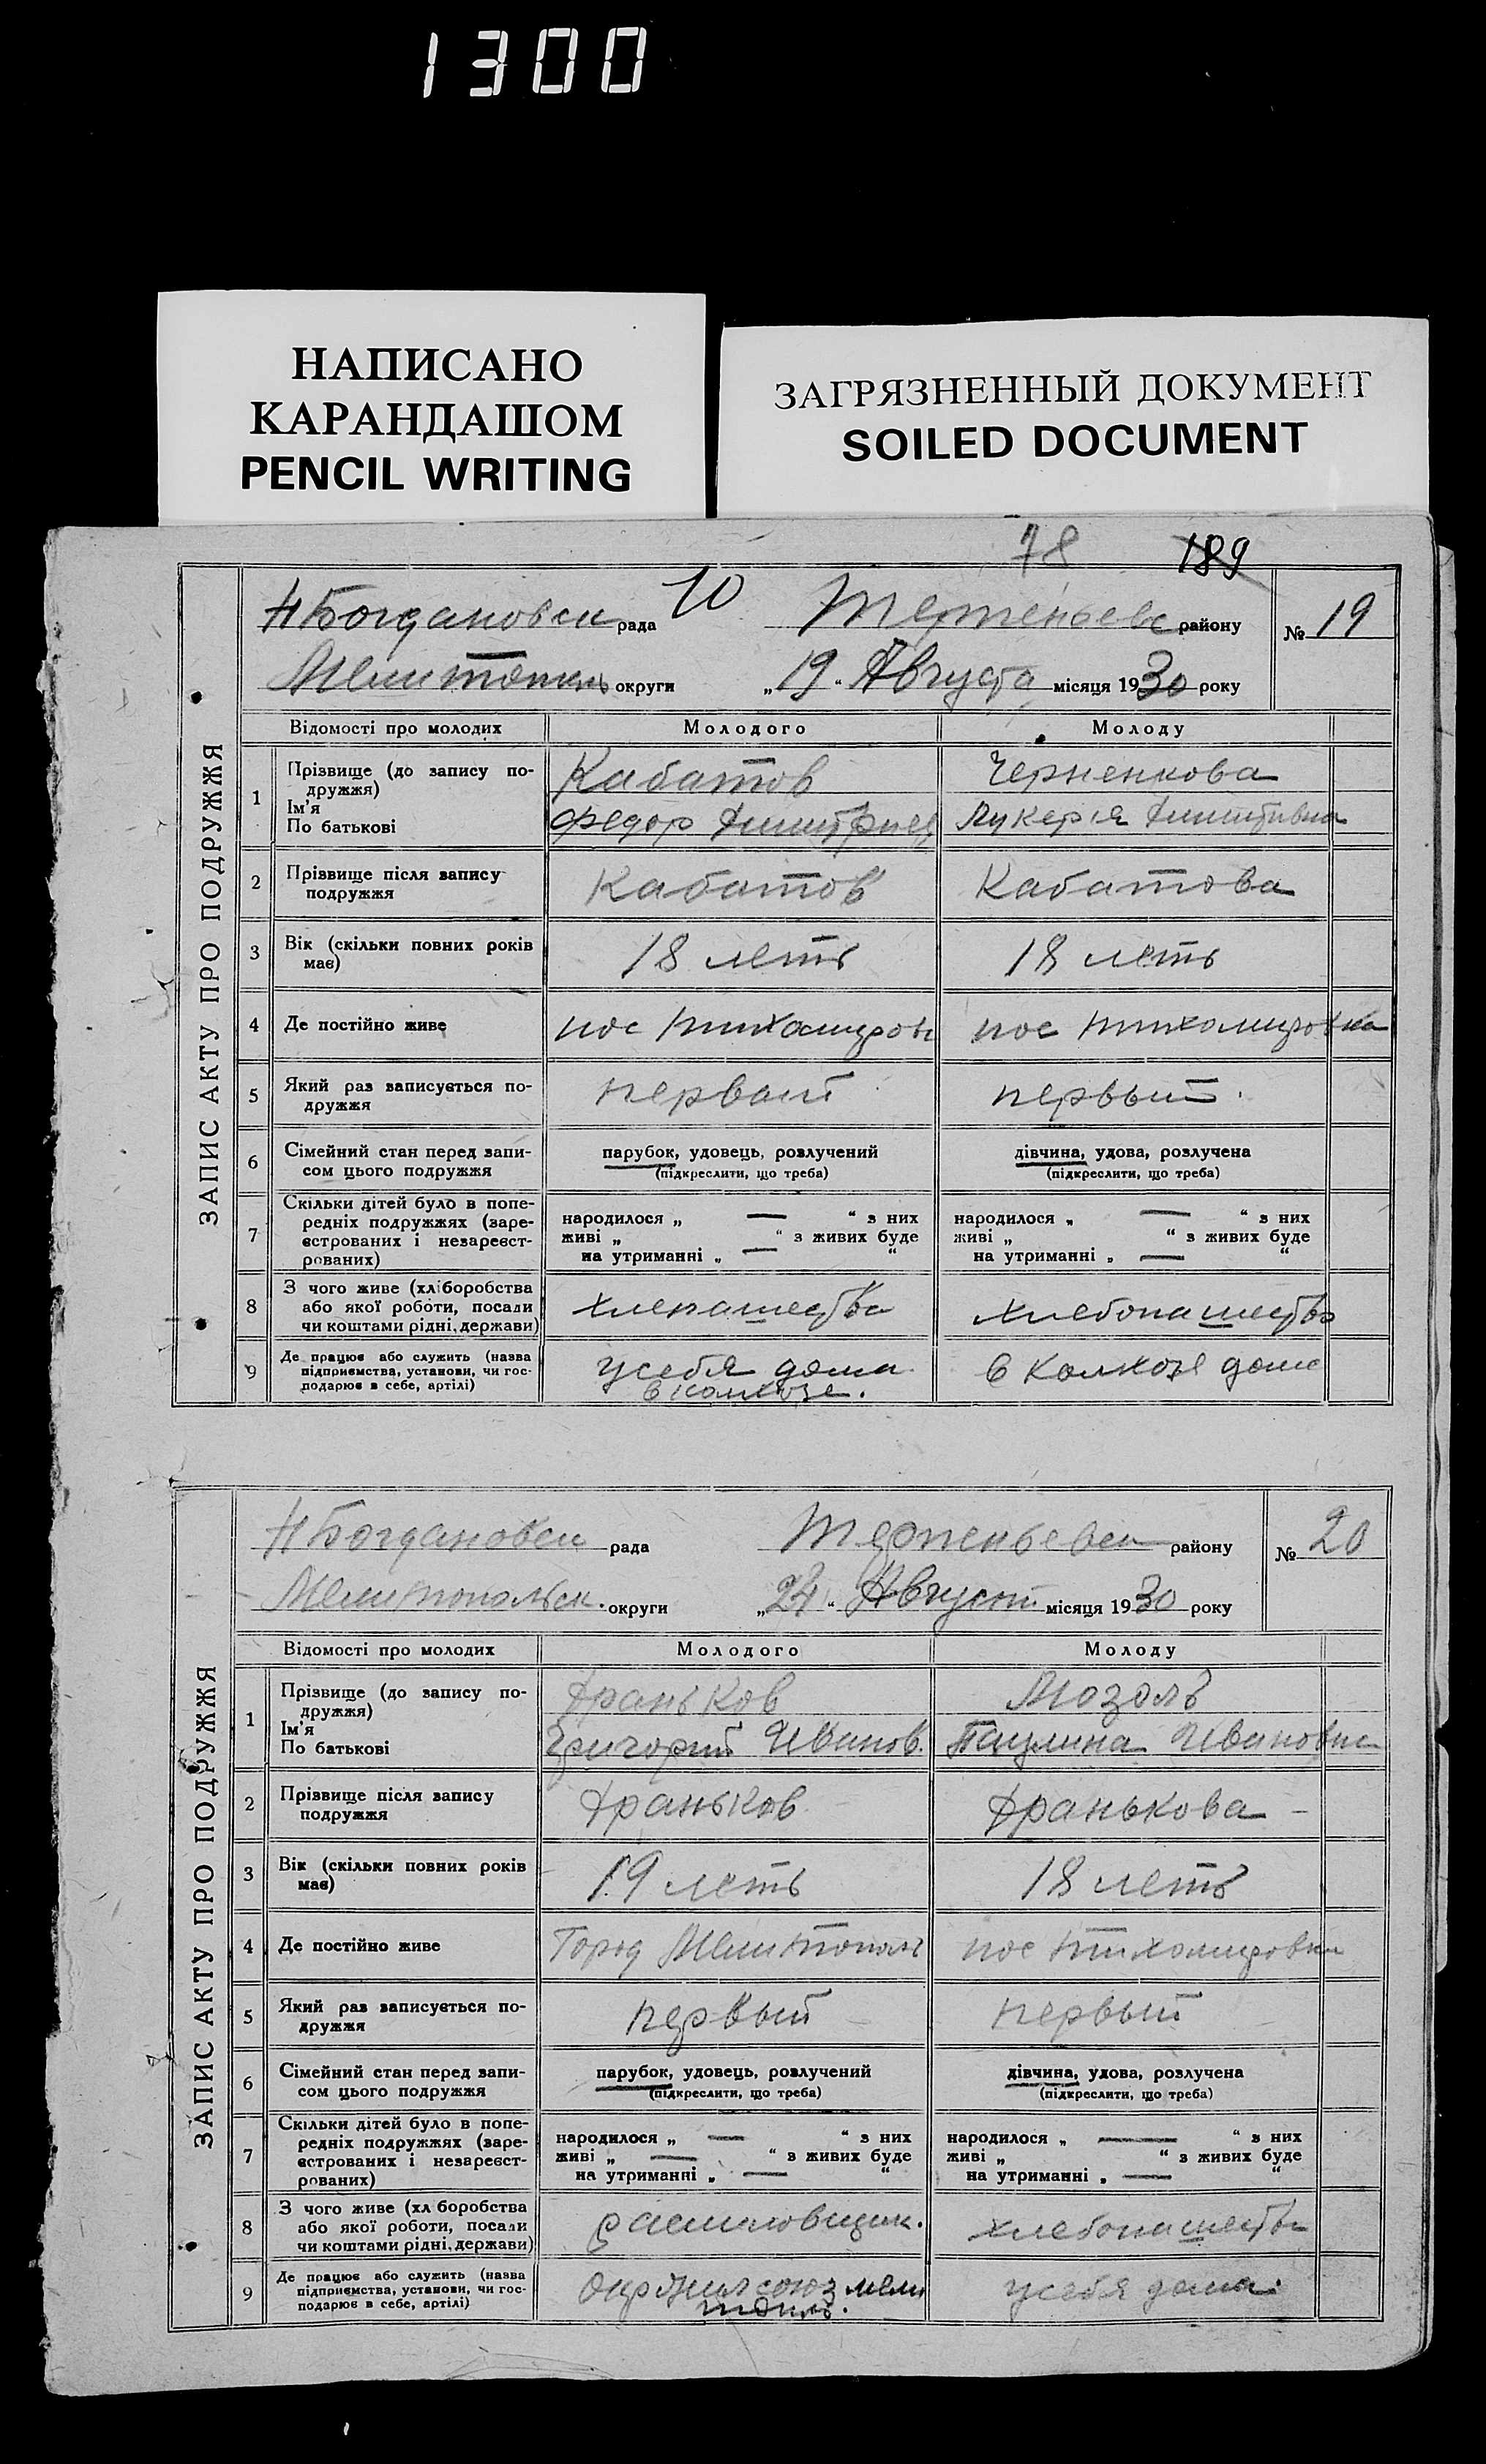 1300
НАПИСАНО
КАРАНДАШОМ
PENCIL WRITING
ЗАГРЯЗНЕННЫЙ ДОКУМЕНТ
SOILED DOCUMENT
78 189
ЗАПИС АКТУ ПРО ПОДРУЖЖЯ
Н Богдановск рада 10 Терпеньевс району № 19
Мелитополь округи „19“ Августа місяця 1930 року
Відомості про молодих Молодого Молоду
1 Прізвище (до запису по-
дружжя)
Ім'я
По батькові
Кабатов Черненкова
Федор Димитриев Лукерія Димитривна
2 Прізвище після запису
подружжя
Кабатов Кабатова
3 Вік (скільки повних років
має)
18 леть 18 леть
4 Де постійно живе пос Тихамиров пос Тихомировка
5 Який раз записується по-
дружжя
первый первый
6 Сімейний стан перед запи-
сом цього подружжя
парубок, удовець, розлучений дівчина, удова, розлучена
(підкреслити, що треба) (підкреслити, що треба)
7 Скільки дітей було в попе-
редніх подружжях (заре-
єстрованих і незареєст-
рованих)
народилося „ — “ з них народилося „ — “ з них
живі „ “ з живих буде живі „ “ з живих буде
на утриманні „ — “ на утриманні „ — “
8 З чого живе (хліборобства
або якої роботи, посади
чи коштами рідні, держави)
хлепашества хлебопашество
9 Де працює або служить (назва
підприємства, установи, чи гос-
подарює в себе, артілі)
усебя дома в колхозя доме
в колхозе.
ЗАПИС АКТУ ПРО ПОДРУЖЖЯ
Н Богдановск рада Терпеньевск району № 20
Мелитопольск. округи „24“ Август місяця 1930 року
Відомості про молодих Молодого Молоду
1 Прізвище (до запису по-
дружжя)
Ім'я
По батькові
Драньков Мозоль
Григорий Иванов. Паулина Ивановна
2 Прізвище після запису
подружжя
Драньков Дранькова
3 Вік (скільки повних років
має)
19 леть 18 леть
4 Де постійно живе Город Мелитополь пос Тихомировка
5 Який раз записується по-
дружжя
первый первый
6 Сімейний стан перед запи-
сом цього подружжя
парубок, удовець, розлучений дівчина, удова, розлучена
(підкреслити, що треба) (підкреслити, що треба)
7 Скільки дітей було в попе-
редніх подружжях (заре-
єстрованих і незареєст-
рованих)
народилося „ — “ з них народилося „ — “ з них
живі „ — “ з живих буде живі „ “ з живих буде
на утриманні „ — “ на утриманні „ — “
8 З чого живе (хл боробства
або якої роботи, посади
чи коштами рідні, держави)
хлебопашества
9 Де працює або служить (назва
підприємства, установи, чи гос-
подарює в себе, артілі)
союз мели усебя дома.
тополь.